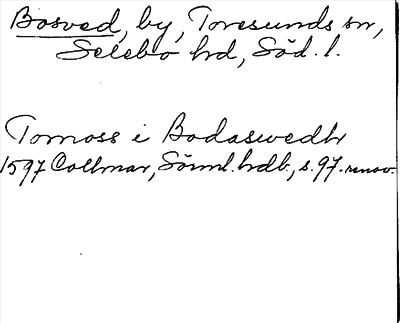 Bosved, by, Toresunds sn,
Selebo hd, Söd. l.
Tomoss i Bodaswedh
1597 Collmar, Sörml. hdb., s. 97. renov.